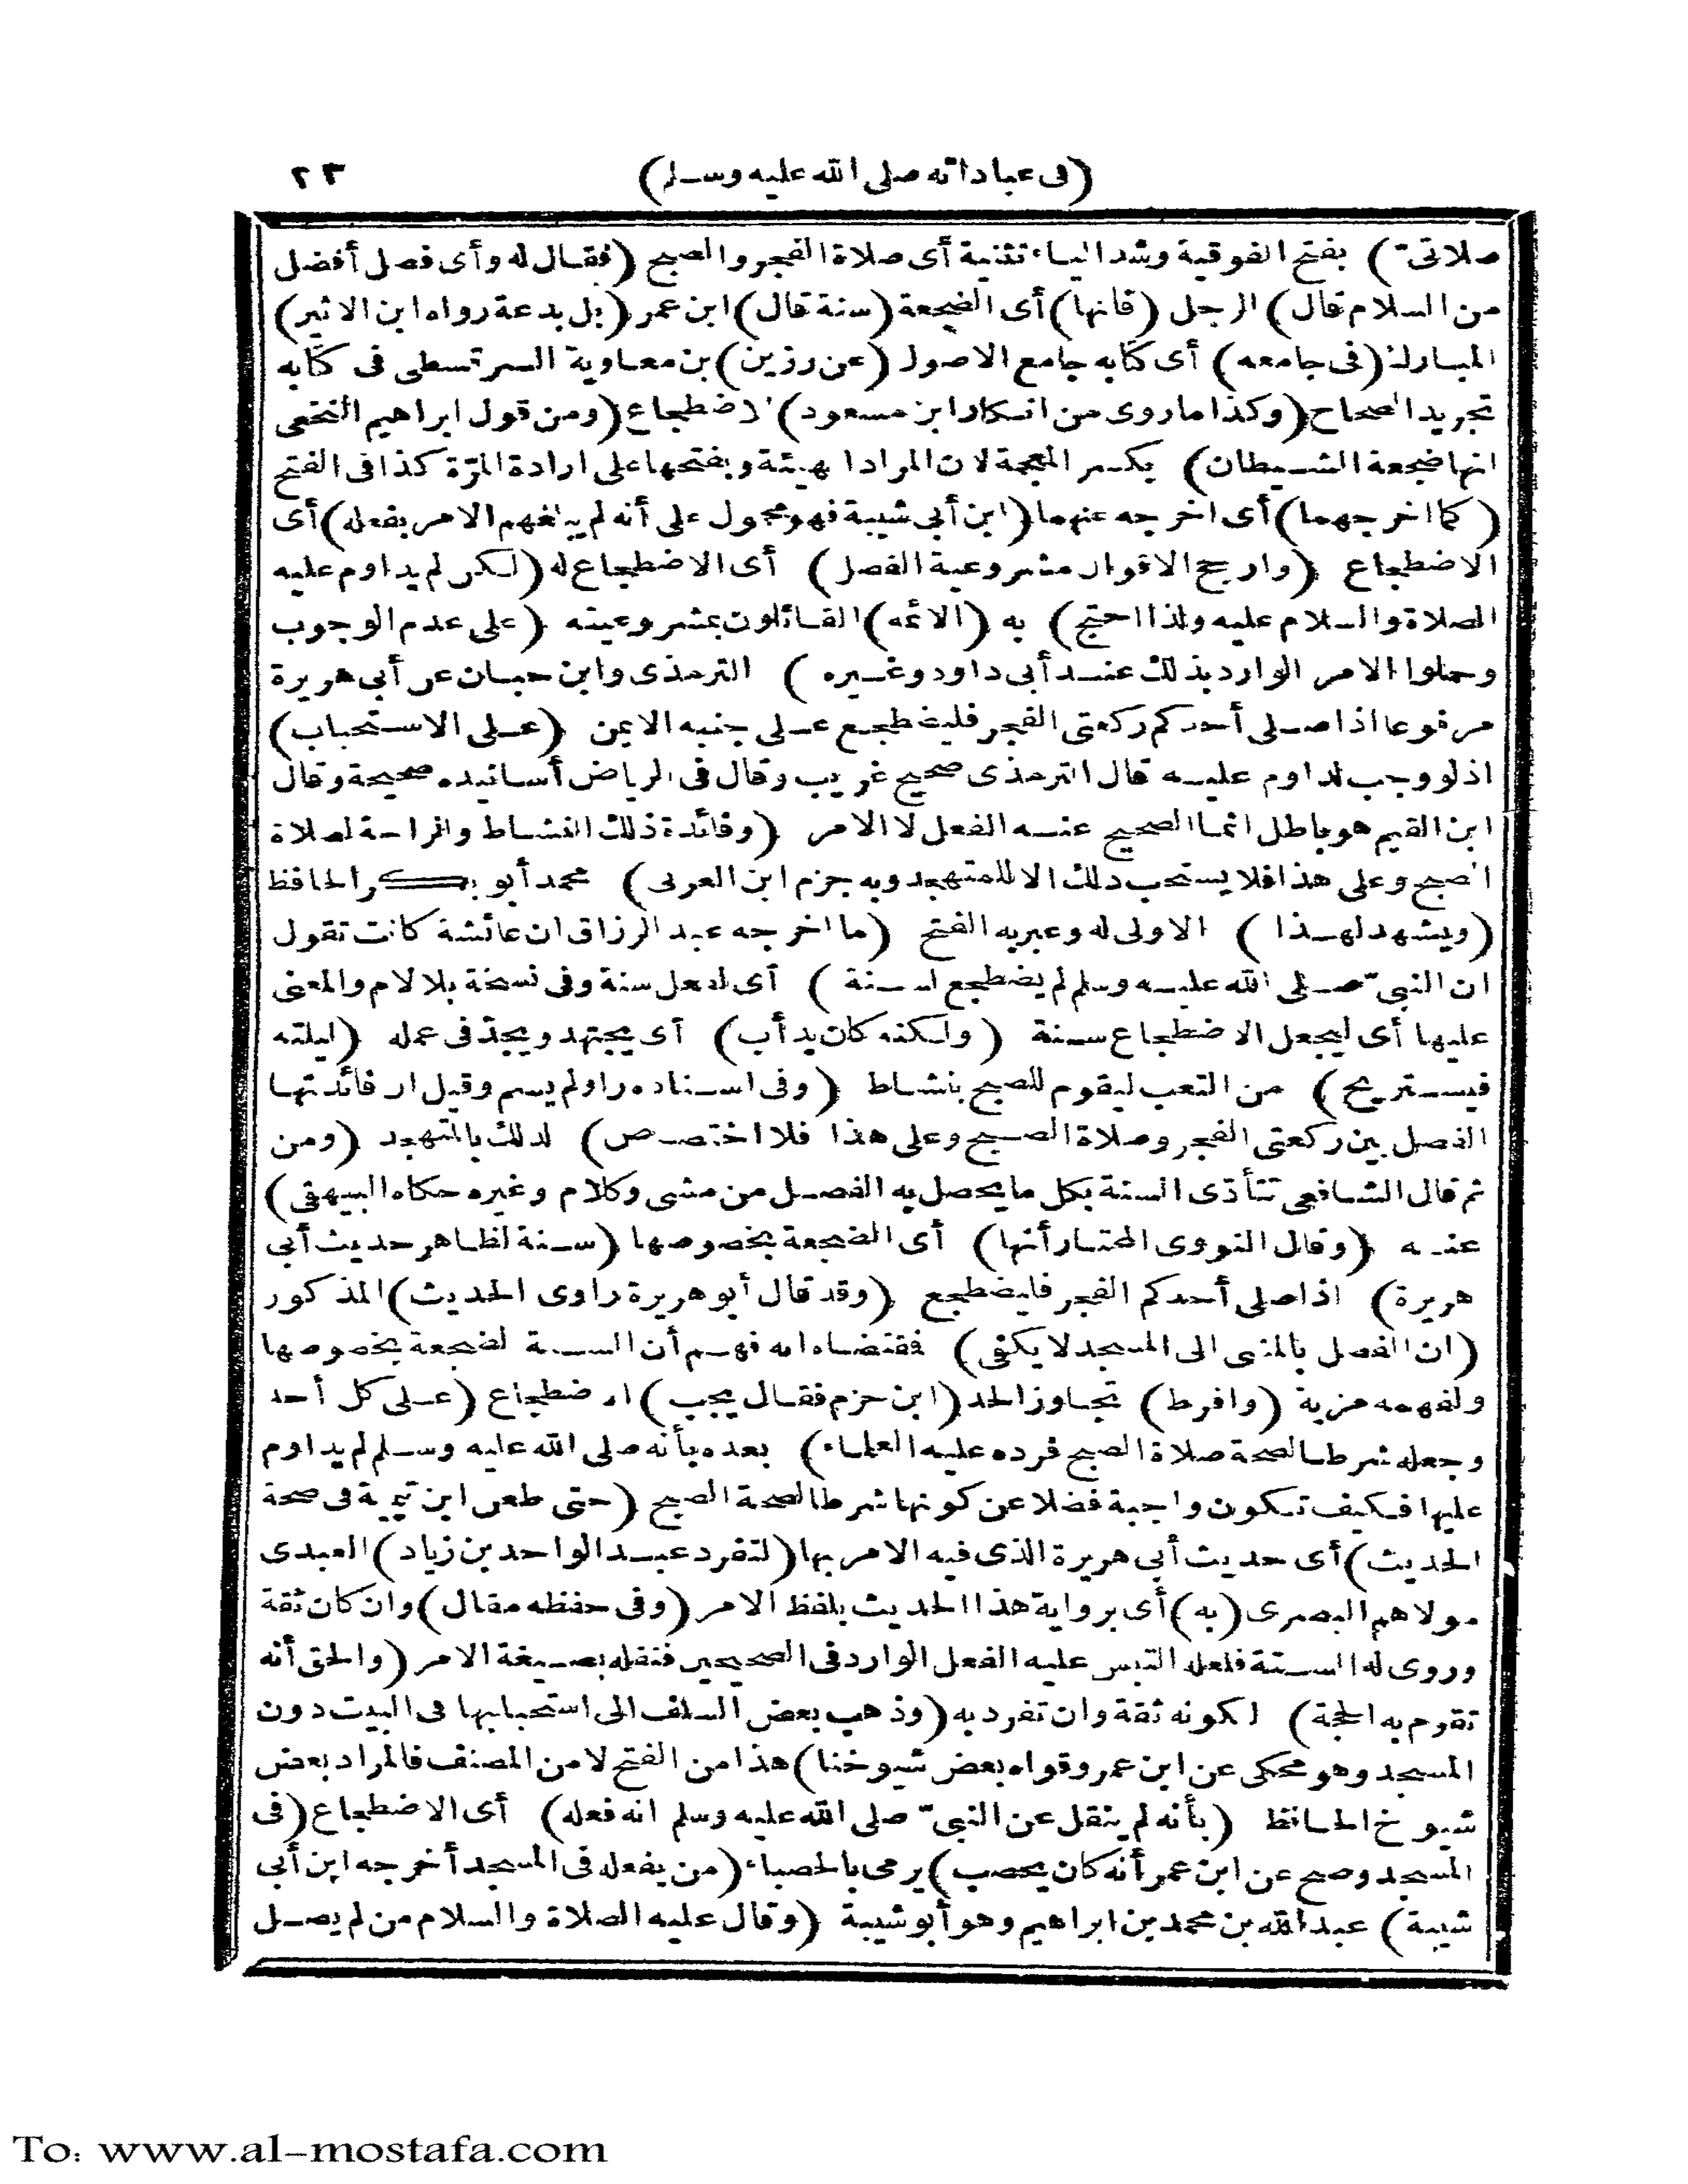 (فى عباداته صلى الله عليه وسلم) ٢٣
صلاتىّ) بفتح الفوقية وشد الياء تثنية أى صلاة الفجر والصبح (فقال له وأى فصل أفضل
من السلام قال) الرجل (فانها) أى الضجعة (سنة قال) ابن عمر (بل بدعة رواه ابن الاثير)
المبارك (فى جامعه) أى كتابه جامع الاصول (عن رزين) بن معاوية السرقسطى فى كتابه
تجريد الصحاح (وكذا ماروى من انكار ابن مسعود) الاضطجاع (ومن قول ابراهيم النخعى
انها ضجعة الشيطان) بكسر المعجمة لان المراد الهيئة وبفتحها على ارادة المرّة كذا فى الفتح
(كما اخرجهما) أى اخرجه عنهما (ابن أبى شيبة فهو محمول على أنه لم يبلغهم الامر بفعله) أى
الاضطجاع (وارجح الاقوال مشروعية الفصل) أى الاضطجاع له (لكن لم يداوم عليه
الصلاة والسلام عليه ولذا احتج) به (الائمه) القائلون بمشروعيته (على عدم الوجوب
وحملوا الامر الوارد بذلك عند أبى داود وغيره) الترمذى وابن حبان عن أبى هريرة
مرفوعا اذا صلى أحدكم ركعتى الفجر فليضطجع على جنبه الايمن (على الاستحباب)
اذ لو وجب لداوم عليه قال الترمذى صحيح غريب وقال فى الرياض أسانيده صحيحة وقال
ابن القيم هو باطل انما الصحيح عنه الفعل لا الامر (وفائدة ذلك النشاط والراحة لصلاة
الصبح وعلى هذا فلا يستحب ذلك الا للمتهجد وبه جزم ابن العربى) محمد أبو بكر الحافظ
(ويشهد لهذا) الاولى له وعبر به الفتح (ما اخرجه عبد الرزاق ان عائشة كانت تقول
ان النبىّ صلى الله عليه وسلم لم يضطجع لسنة) أى لفعل سنة وفى نسخة بلا لام والمعنى
عليها أى ليجعل الاضطجاع سنة (ولكنه كان يدأب) أى يجتهد ويجدّ فى عمله (ليلته
فيستريح) من التعب ليقوم للصبح بنشاط (وفى اسناده راو لم يسم وقيل ان فائدتها
الفصل بين ركعتى الفجر وصلاة الصبح وعلى هذا فلا اختصاص) لذلك بالمتهجد (ومن
ثم قال الشافعى تتأذى السنة بكل ما يحصل به الفصل من مشى وكلام وغيره حكاه البيهقى)
عنه (وقال النووى المختار أنها) أى الضجعة بخصوصها (سنة لظاهر حديث أبى
هريرة) اذا صلى أحدكم الفجر فليضطجع (وقد قال أبو هريرة راوى الحديث) المذكور
(ان الفصل بالمشى الى المسجد لا يكفى) فقتضاه انه فهم أن السنة الضجعة بخصوصها
ولفهمه مزية (وافرط) تجاوز الحد (ابن حزم فقال يجب) الاضطجاع (على كل أحد
وجعله شرطا لصحة صلاة الصبح فرده عليه العلماء) بعده بأنه صلى الله عليه وسلم لم يداوم
عليها فكيف تكون واجبة فضلا عن كونها شرطا لصحة الصبح (حتى طعن ابن تيمية فى صحة
الحديث) أى حديث أبى هريرة الذى فيه الامر بها (لتفرد عبد الواحد بن زياد) العبدى
مولاهم البصرى (به) أى برواية هذا الحديث بلفظ الامر (وفى حفظه مقال) وان كان ثقة
وروى له الستة فلعله التبس عليه الفعل الوارد فى الصحيحين فنقله بصيغة الامر (والحق أنه
تقوم به الحجة) لكونه ثقة وان تفرد به (وذهب بعض السلف الى استحبابها فى البيت دون
المسجد وهو محكى عن ابن عمر وقواه بعض شيوخنا) هذا من الفتح لا من المصنف فالمراد بعض
شيوخ الحافظ (بأنه لم ينقل عن النبىّ صلى الله عليه وسلم انه فعله) أى الاضطجاع (فى
المسجد وصح عن ابن عمر أنه كان يحصب) يرمى بالحصباء (من يفعله فى المسجد أخرجه ابن أبى
شيبة) عبد الله بن محمد بن ابراهيم وهو أبو شيبة (وقال عليه الصلاة والسلام من لم يصل
To: www.al-mostafa.com